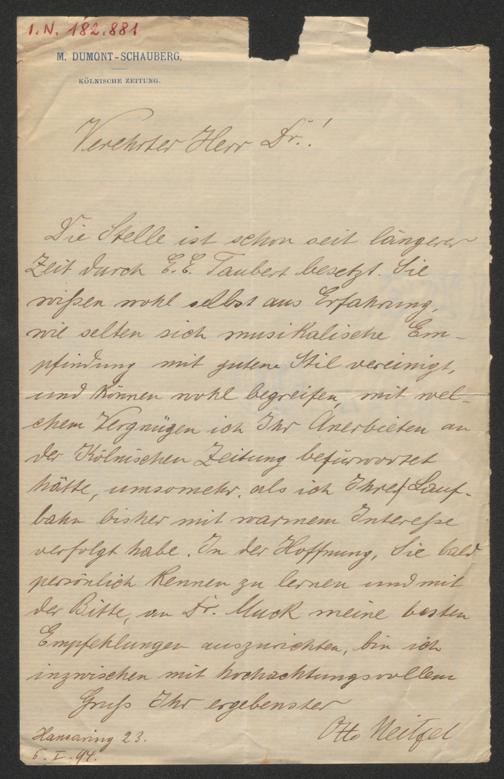 I.N. 182.881
M. DUMONT-SCHAUBERG.
KÖLNISCHE ZEITUNG.
Verehrter Herr Dr.!
Die Stelle ist schon seit längerer
Zeit durch E.E. Taubert besetzt. Sie
wißen wohl selbst aus Erfahrung,
wie selten sich musikalische Em-
pfindung mit gutem Stil vereinigt,
und können wohl begreifen, mit wel-
chem Vergnügen ich Ihr Anerbieten an
der Kölnischen Zeitung befürwortet
hätte, umsomehr, als ich Ihre Lauf-
bahn bisher mit warmem Intereße
verfolgt habe. In der Hoffnung, Sie bald
persönlich kennen zu lernen und mit
der Bitte, an Dr. Muck meine besten
Empfehlungen auszurichten, bin ich
inzwischen mit hochachtungsvollem
Gruß Ihr ergebenster
Otto Neitzel
Hansaring 23.
5. I. 94.